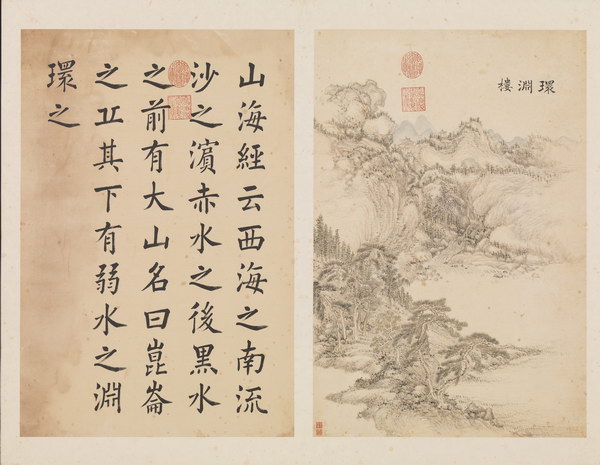 環淵樓
山海經云西海之南流
沙之濱赤水之後黑水
之前有大山名曰崑崙
之丘其下有弱水之淵
環之